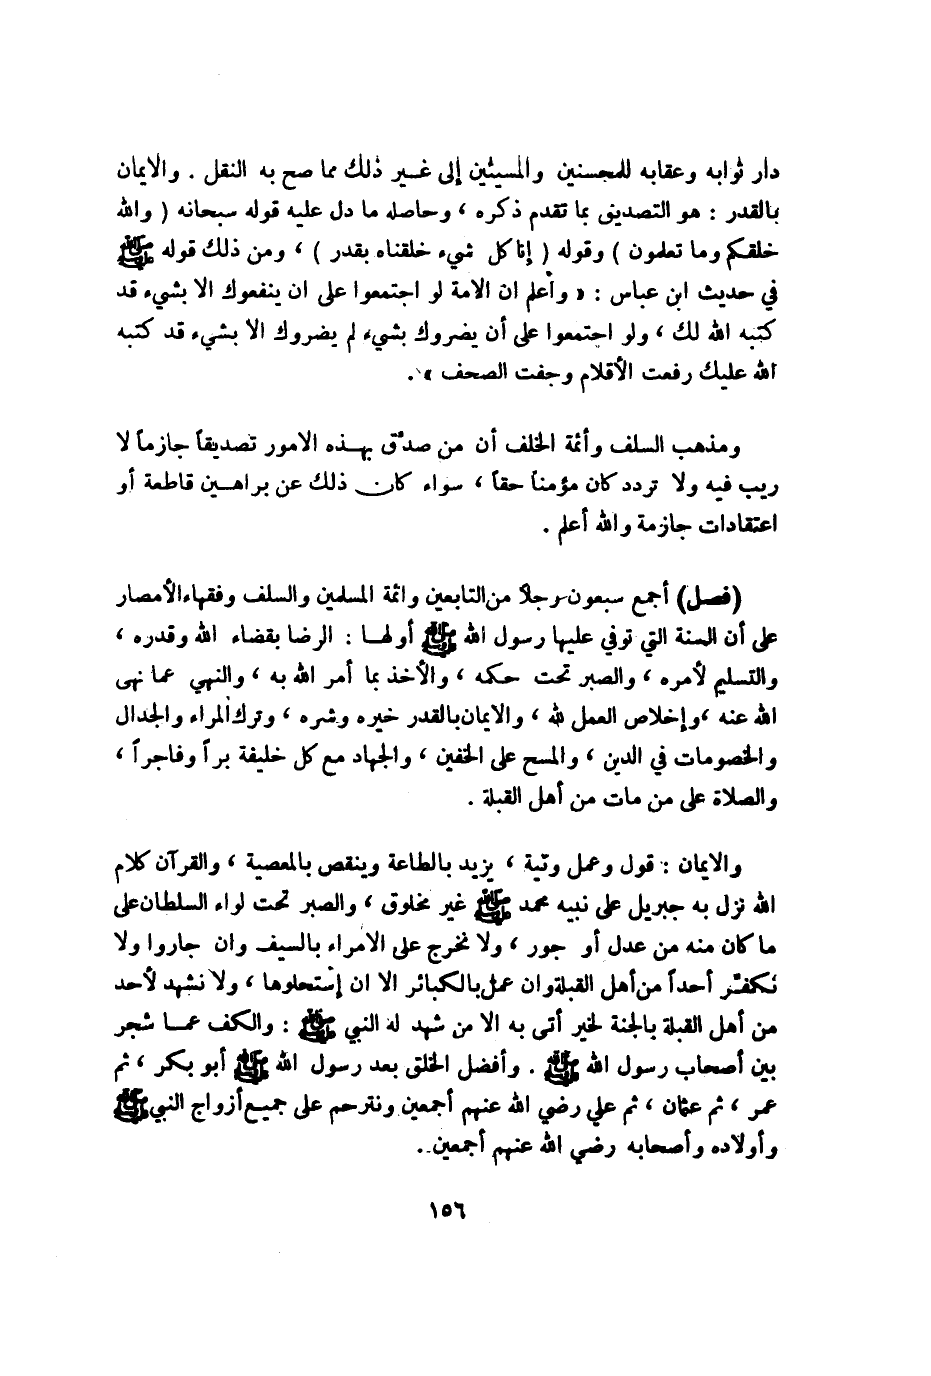 دار ثوابه وعقابه للمحسنين والمسيئين إلى غير ذلك مما صح به النقل . والايمان
بالقدر : هو التصديق بما تقدم ذكره ، وحاصله ما دل عليه قوله سبحانه ( والله
خلقكم وما تعلمون ) وقوله ( إنا كل شيء خلقناه بقدر ) ، ومن ذلك قوله ﷺ
في حديث ابن عباس : « وأعلم ان الامة لو اجتمعوا على ان ينفعوك الا بشيء قد
كتبه الله لك ، ولو اجتمعوا على أن يضروك بشيء لم يضروك الا بشيء قد كتبه
الله عليك رفعت الأقلام وجفت الصحف » .
ومذهب السلف وأئمة الخلف أن من صدّق بهذه الامور تصديقاً جازماً لا
ريب فيه ولا تردد كان مؤمناً حقاً ، سواء كان ذلك عن براهين قاطعة أو
اعتقادات جازمة والله أعلم .
(فصل) أجمع سبعون رجلاً من التابعين وائمة المسلمين والسلف وفقهاء الأمصار
على أن السنة التي توفي عليها رسول الله ﷺ أولها : الرضا بقضاء الله وقدره ،
والتسليم لأمره ، والصبر تحت حكمه ، والأخذ بما أمر الله به ، والنهي عما نهى
الله عنه ، وإخلاص العمل لله ، والايمان بالقدر خيره وشره ، وترك المراء والجدال
والخصومات في الدين ، والمسح على الخفين ، والجهاد مع كل خليفة براً وفاجراً ،
والصلاة على من مات من أهل القبلة .
والايمان : قول وعمل ونية ، يزيد بالطاعة وينقص بالمعصية ، والقرآن كلام
الله نزل به جبريل على نبيه محمد ﷺ غير مخلوق ، والصبر تحت لواء السلطان على
ما كان منه من عدل أو جور ، ولا نخرج على الامراء بالسيف وان جاروا ولا
نكفّر أحداً من أهل القبلة وان عمل بالكبائر الا ان إستحلوها ، ولا نشهد لأحد
من أهل القبلة بالجنة لخير أتى به الا من شهد له النبي ﷺ : والكف عما شجر
بين أصحاب رسول الله ﷺ . وأفضل الخلق بعد رسول الله ﷺ أبو بكر ، ثم
عمر ، ثم عثمان ، ثم علي رضي الله عنهم أجمعين ونترحم على جميع أزواج النبي ﷺ
وأولاده وأصحابه رضي الله عنهم أجمعين..
١٥٦